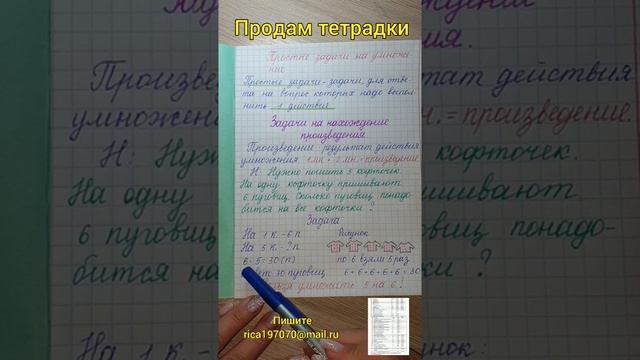 Продам тетрадки
Простые задачи на умноже-
ние
Простые задачи - задачи, для отве-
та на вопрос которых надо выпол-
нить 1 действие
Задачи на нахождение
произведения.
Произведение результат действия
умножения 1 мн. • 2 мн. = произведение
Н: Нужно пошить 5 кофточек.
На одну кофточку пришивают
6 пуговиц. Сколько пуговиц понадо-
бится на все кофточки?
Задача
На 1 к. - 6 п. Рисунок
На 5 к. - ? п.
6 · 5 = 30 (п) по 6 взяли 5 раз
30 пуговиц 6 + 6 + 6 + 6 + 6 = 30
умножать 5 на 6!
Пишите
rica197070@mail.ru